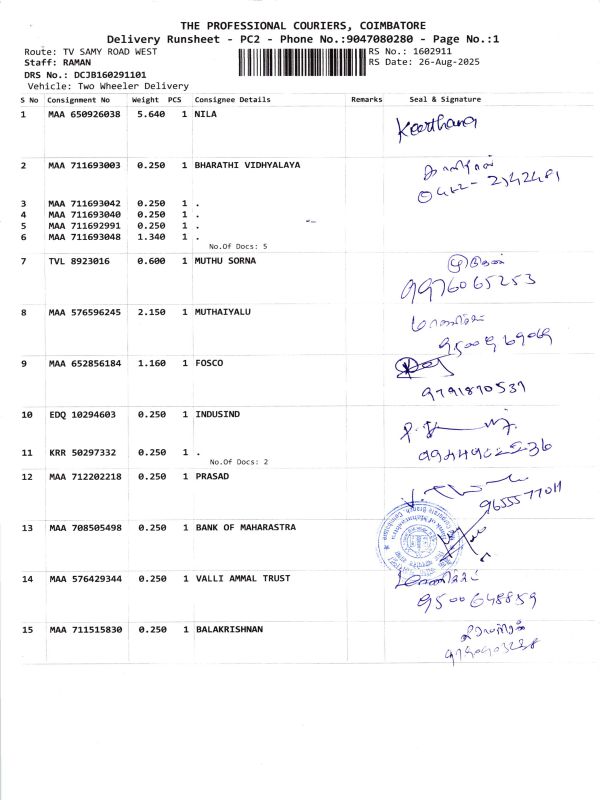 THE PROFESSIONAL COURIERS, COIMBATORE
Delivery Runsheet - PC2 - Phone No.:9047080280 - Page No.:1
Route: TV SAMY ROAD WEST
RS No.: 1602911
Staff: RAMAN
RS Date: 26-Aug-2025
DRS No.: DCJB160291101
Vehicle: Two Wheeler Delivery
S No Consignment No Weight PCS Consignee Details Remarks Seal & Signature
1 MAA 650926038 5.640 1 NILA
Keerthana
2 MAA 711693003 0.250 1 BHARATHI VIDHYALAYA
0422-2142481
3 MAA 711693042 0.250 1 .
4 MAA 711693040 0.250 1 .
5 MAA 711692991 0.250 1 .
6 MAA 711693048 1.340 1 .
No.Of Docs: 5
7 TVL 8923016 0.600 1 MUTHU SORNA
9976065253
8 MAA 576596245 2.150 1 MUTHAIYALU
9 MAA 652856184 1.160 1 FOSCO
9791870537
10 EDQ 10294603 0.250 1 INDUSIND
11 KRR 50297332 0.250 1 .
No.Of Docs: 2
12 MAA 712202218 0.250 1 PRASAD
9655577011
13 MAA 708505498 0.250 1 BANK OF MAHARASTRA
14 MAA 576429344 0.250 1 VALLI AMMAL TRUST
9500648859
15 MAA 711515830 0.250 1 BALAKRISHNAN